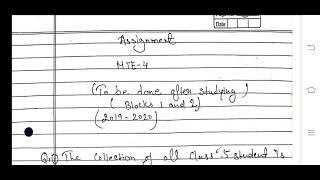 Date
Assignment
MTE-4
(To be done after studying)
( Blocks 1 and 2)
(2019-2020)
The Collection of all Class 5 student is